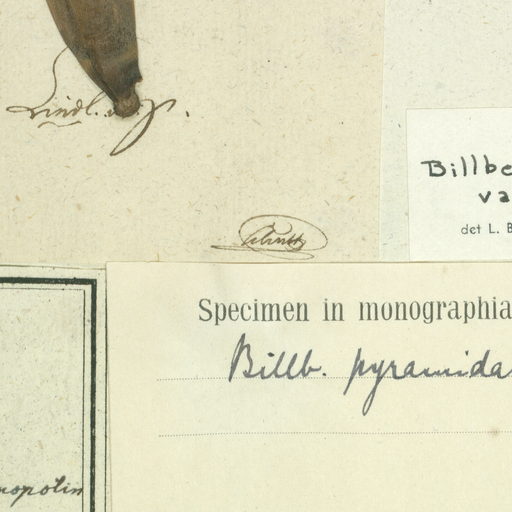 Lindl.
Billbe
va
det L. B
Schott
Specimen in monographia
Billb. pyramida
nopolin